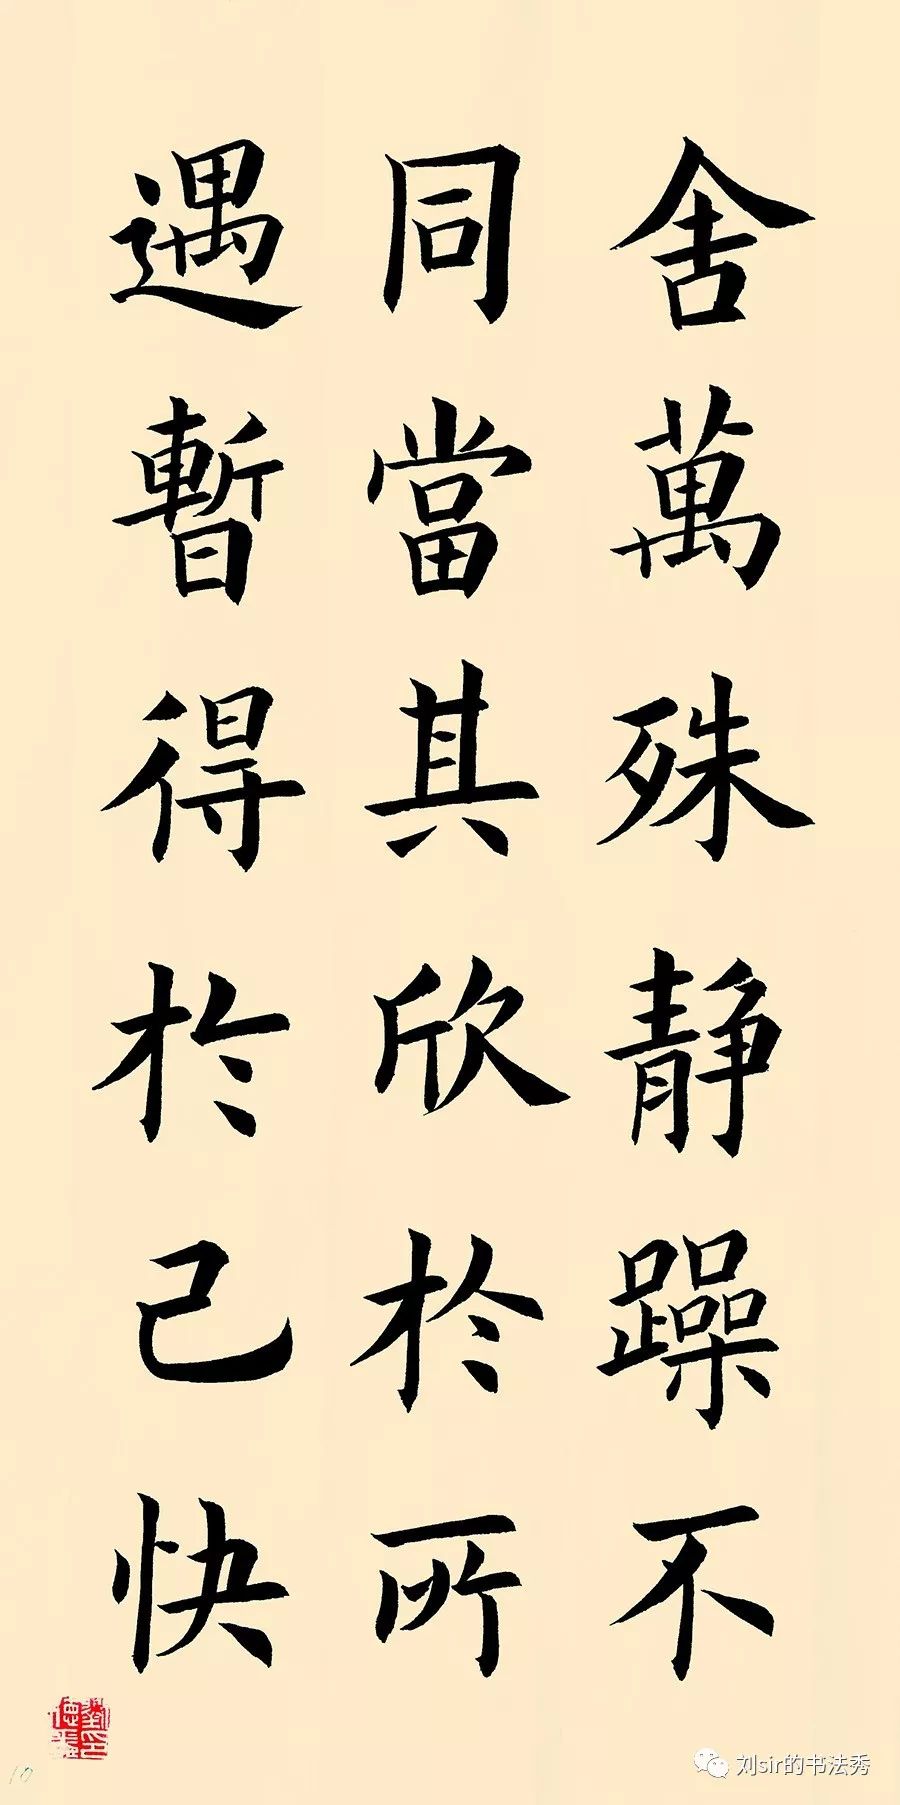 舍萬殊静躁不
同當其欣於所
遇暫得於己快
10
刘sir的书法秀